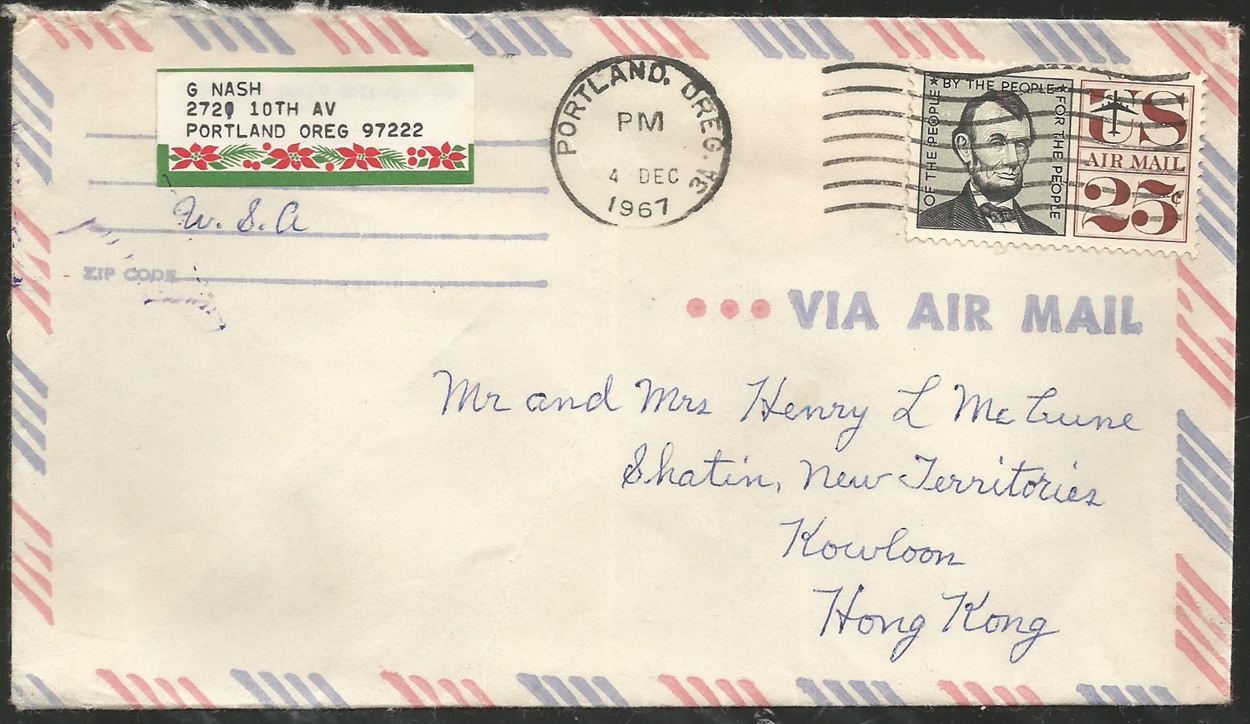 G NASH
272 10TH AV
PORTLAND OREG 97222
W. S. A
ZIP CODE
PORTLAND, OREG.
PM
4 DEC
1967
OF THE PEOPLE
★ BY THE PEOPLE ★
FOR THE PEOPLE
US
AIR MAIL
25¢
••• VIA AIR MAIL
Mr and Mrs Henry L McCune
Shatin, New Territories
Kowloon
Hong Kong